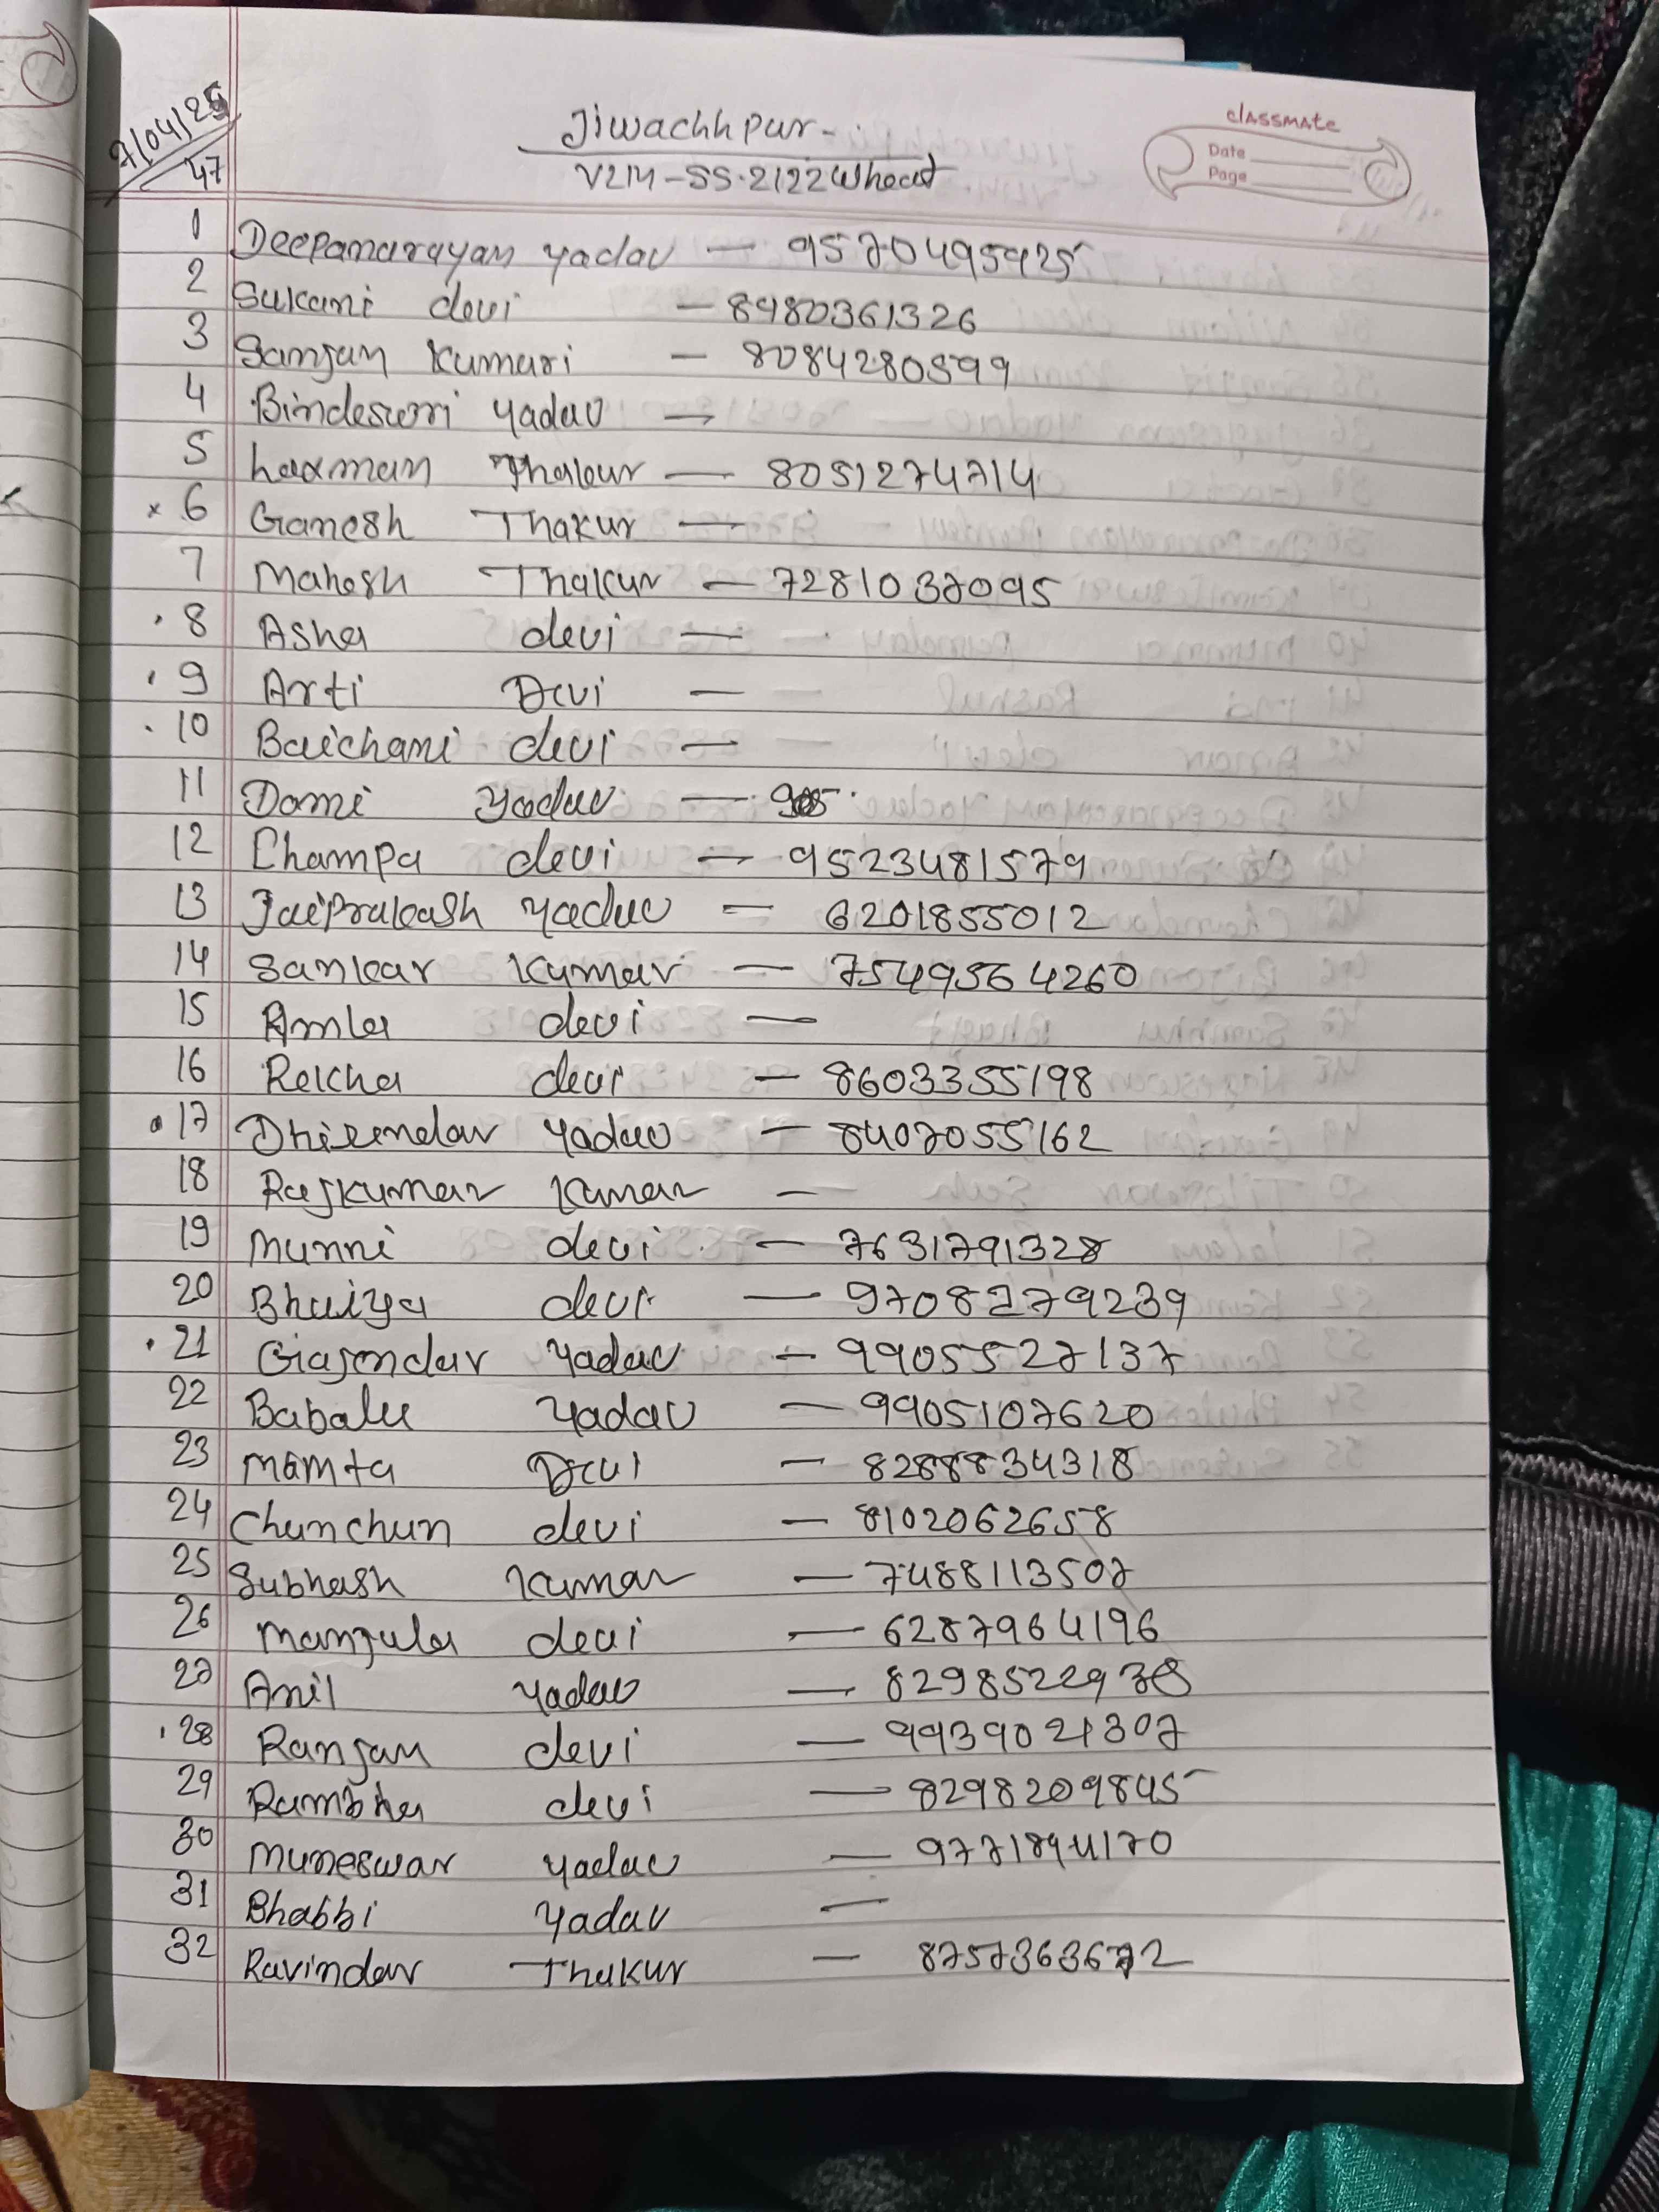 7/04/25
47
Jiwachhpur-
V214-SS-2122 Wheat
classmate
Date
Page
1 Deepanarayan yadav - 9570495925
2 Sukani devi - 8980361326
3 Sanjan Kumari - 8084280599
4 Bindeswri yadav -
5 Laxman Thakur - 8051274714
x 6 Ganesh Thakur -
7 Mahesh Thakur - 7281037095
. 8 Asha devi -
. 9 Arti Devi -
. 10 Baichani devi -
11 Domi yadav -
12 Champa devi - 9523481579
13 JaiPrakash yadav - 6201855012
14 Sankar Kumar - 7549564260
15 Amla devi -
16 Rekha devi - 8603355198
. 17 Dhirendar yadav - 8407055162
18 Rajkumar Kumar -
19 Munni devi - 7631791328
20 Bhaiya devi - 9708279239
. 21 Gajendar yadav - 9905527137
22 Babalu yadav - 9905107620
23 Mamta Devi - 8288834318
24 Chunchun devi - 8102062658
25 Subhash Kumar - 7488113507
26 Manjula devi - 6287964196
27 Anil yadav - 8298522938
. 28 Ranjan devi - 9939021307
29 Rambha devi - 8298209845
30 Muneswar yadav - 9771894170
31 Bhabbi yadav -
32 Ravindar Thakur - 8757363672